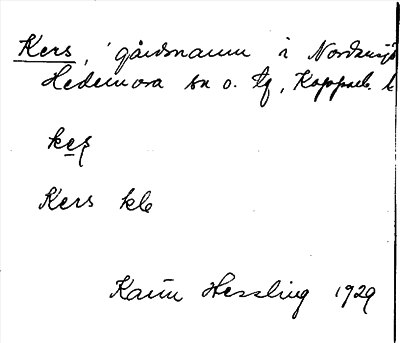 Kers, gårdsnamn i
Hedemora sn o. tg, Kopparb. l
kes
Kers kle
Karin Hessling 1929